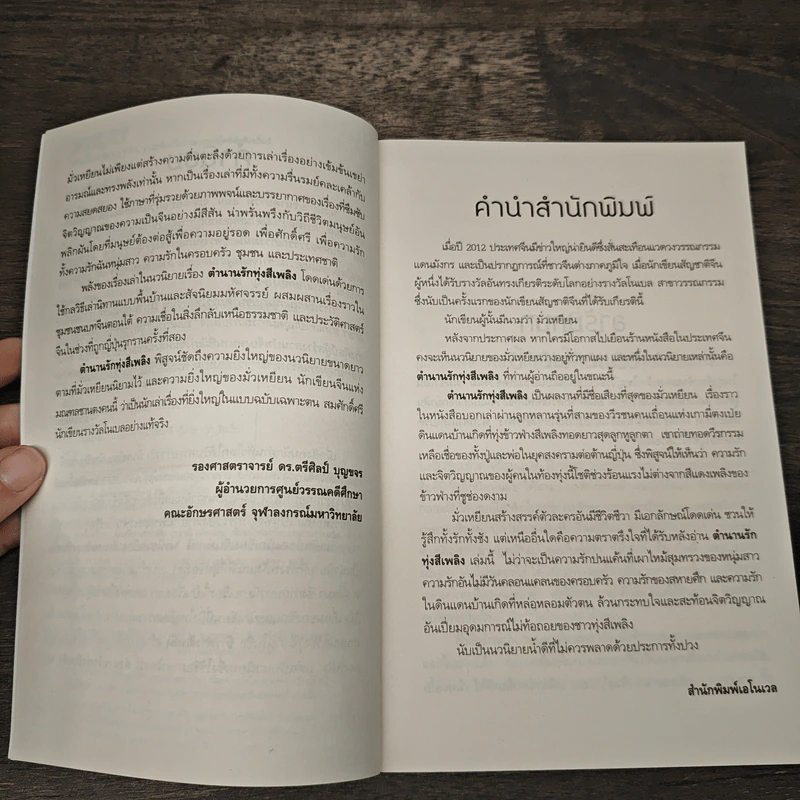 มั่วเหยียนไม่เพียงแต่สร้างความตื่นตะลึงด้วยการเล่าเรื่องอย่างเข้มข้นเขย่า
อารมณ์และทรงพลังเท่านั้น หากเป็นเรื่องเล่าที่มีทั้งความรื่นรมย์คละเคล้ากับ
ความสยดสยอง ใช้ภาษาที่รุ่มรวยด้วยภาพพจน์และบรรยากาศของเรื่องที่ซึมซับ
จิตวิญญาณของความเป็นจีนอย่างมีสีสัน น่าพรั่นพรึงกับวิถีชีวิตมนุษย์อัน
พลิกผันโดยที่มนุษย์ต้องต่อสู้เพื่อความอยู่รอด เพื่อศักดิ์ศรี เพื่อความรัก
ทั้งความรักฉันหนุ่มสาว ความรักในครอบครัว ชุมชน และประเทศชาติ
พลังของเรื่องเล่าในนวนิยายเรื่อง ตำนานรักทุ่งสีเพลิง โดดเด่นด้วยการ
ใช้กลวิธีเล่านิทานแบบพื้นบ้านและสัจนิยมมหัศจรรย์ ผสมผสานเรื่องราวใน
ชุมชนชนบทจีนตอนใต้ ความเชื่อในสิ่งลึกลับเหนือธรรมชาติ และประวัติศาสตร์
จีนในช่วงที่ถูกญี่ปุ่นรุกรานครั้งที่สอง
ตำนานรักทุ่งสีเพลิง พิสูจน์ชัดถึงความยิ่งใหญ่ของนวนิยายขนาดยาว
ตามที่มั่วเหยียนนิยามไว้ และความยิ่งใหญ่ของมั่วเหยียน นักเขียนจีนแห่ง
มณฑลซานตงคนนี้ ว่าเป็นนักเล่าเรื่องที่ยิ่งใหญ่ในแบบฉบับเฉพาะตน สมศักดิ์ศรี
นักเขียนรางวัลโนเบลอย่างแท้จริง
รองศาสตราจารย์ ดร.ตรีศิลป์ บุญขจร
ผู้อำนวยการศูนย์วรรณคดีศึกษา
คณะอักษรศาสตร์ จุฬาลงกรณ์มหาวิทยาลัย
คำนำสำนักพิมพ์
เมื่อปี 2012 ประเทศจีนมีข่าวใหญ่น่ายินดีซึ่งสั่นสะเทือนแวดวงวรรณกรรม
แดนมังกร และเป็นปรากฏการณ์ที่ชาวจีนต่างภาคภูมิใจ เมื่อนักเขียนสัญชาติจีน
ผู้หนึ่งได้รับรางวัลอันทรงเกียรติระดับโลกอย่างรางวัลโนเบล สาขาวรรณกรรม
ซึ่งนับเป็นครั้งแรกของนักเขียนสัญชาติจีนที่ได้รับเกียรตินี้
นักเขียนผู้นั้นมีนามว่า มั่วเหยียน
หลังจากประกาศผล หากใครมีโอกาสไปเยือนร้านหนังสือในประเทศจีน
คงจะเห็นนวนิยายของมั่วเหยียนวางอยู่ทั่วทุกแผง และหนึ่งในนวนิยายเหล่านั้นคือ
ตำนานรักทุ่งสีเพลิง ที่ท่านผู้อ่านถืออยู่ในขณะนี้
ตำนานรักทุ่งสีเพลิง เป็นผลงานที่มีชื่อเสียงที่สุดของมั่วเหยียน เรื่องราว
ในหนังสือบอกเล่าผ่านลูกหลานรุ่นที่สามของวีรชนคนเถื่อนแห่งเกามี่ตงเป่ย
ดินแดนบ้านเกิดที่ทุ่งข้าวฟ่างสีเพลิงทอดยาวสุดลูกหูลูกตา เขาถ่ายทอดวีรกรรม
เหลือเชื่อของทั้งปู่และพ่อในยุคสงครามต่อต้านญี่ปุ่น ซึ่งพิสูจน์ให้เห็นว่า ความรัก
และจิตวิญญาณของผู้คนในท้องทุ่งนี้โชติช่วงร้อนแรงไม่ต่างจากสีแดงเพลิงของ
ข้าวฟ่างที่ชูช่องดงาม
มั่วเหยียนสร้างสรรค์ตัวละครอันมีชีวิตชีวา มีเอกลักษณ์โดดเด่น ชวนให้
รู้สึกทั้งรักทั้งชัง แต่เหนืออื่นใดคือความตราตรึงใจที่ได้รับหลังอ่าน ตำนานรัก
ทุ่งสีเพลิง เล่มนี้ ไม่ว่าจะเป็นความรักปนแค้นที่เผาไหม้สุมทรวงของหนุ่มสาว
ความรักอันไม่มีวันคลอนแคลนของครอบครัว ความรักของสหายศึก และความรัก
ในดินแดนบ้านเกิดที่หล่อหลอมตัวตน ล้วนกระทบใจและสะท้อนจิตวิญญาณ
อันเปี่ยมอุดมการณ์ไม่ท้อถอยของชาวทุ่งสีเพลิง
นับเป็นนวนิยายน้ำดีที่ไม่ควรพลาดด้วยประการทั้งปวง
สำนักพิมพ์เอโนเวล